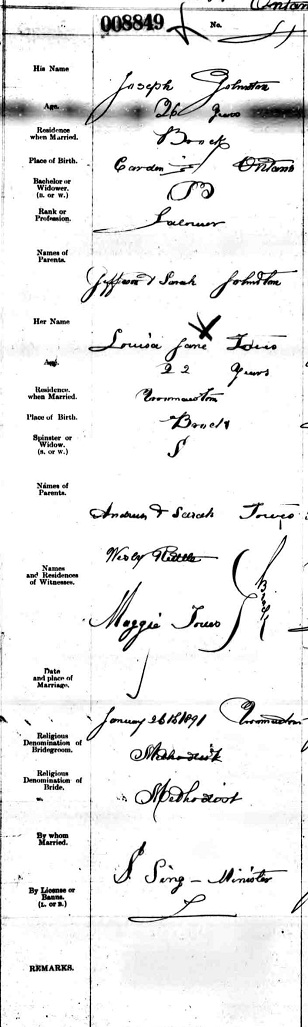 Ontario
008849 No.
His Name Joseph Johnston
Age. 26 years
Residence
when Married. Brock
Place of Birth. Carden Ontario
Bachelor or
Widower.
(B. or W.) B
Rank or
Profession. Farmer
Names of
Parents.
Jefferson & Sarah Johnston
Her Name
Louisa Jane Towes
Age. 22 years
Residence.
when Married. Vroomanton
Place of Birth. Brock
Spinster or
Widow.
(S. or W.) S
Names of
Parents.
Andrew & Sarah Towes
Names
and Residences
of Witnesses.
Wesly
Maggie Towes
Brock
Date
and place of
Marriage.
January 28 1891 Vroomanton
Religious
Denomination of
Bridegroom. Methodist
Religious
Denomination of
Bride. Methodist
By whom
Married.
S Sing - Minister
By License or
Banns.
(L. or B.) L
REMARKS.